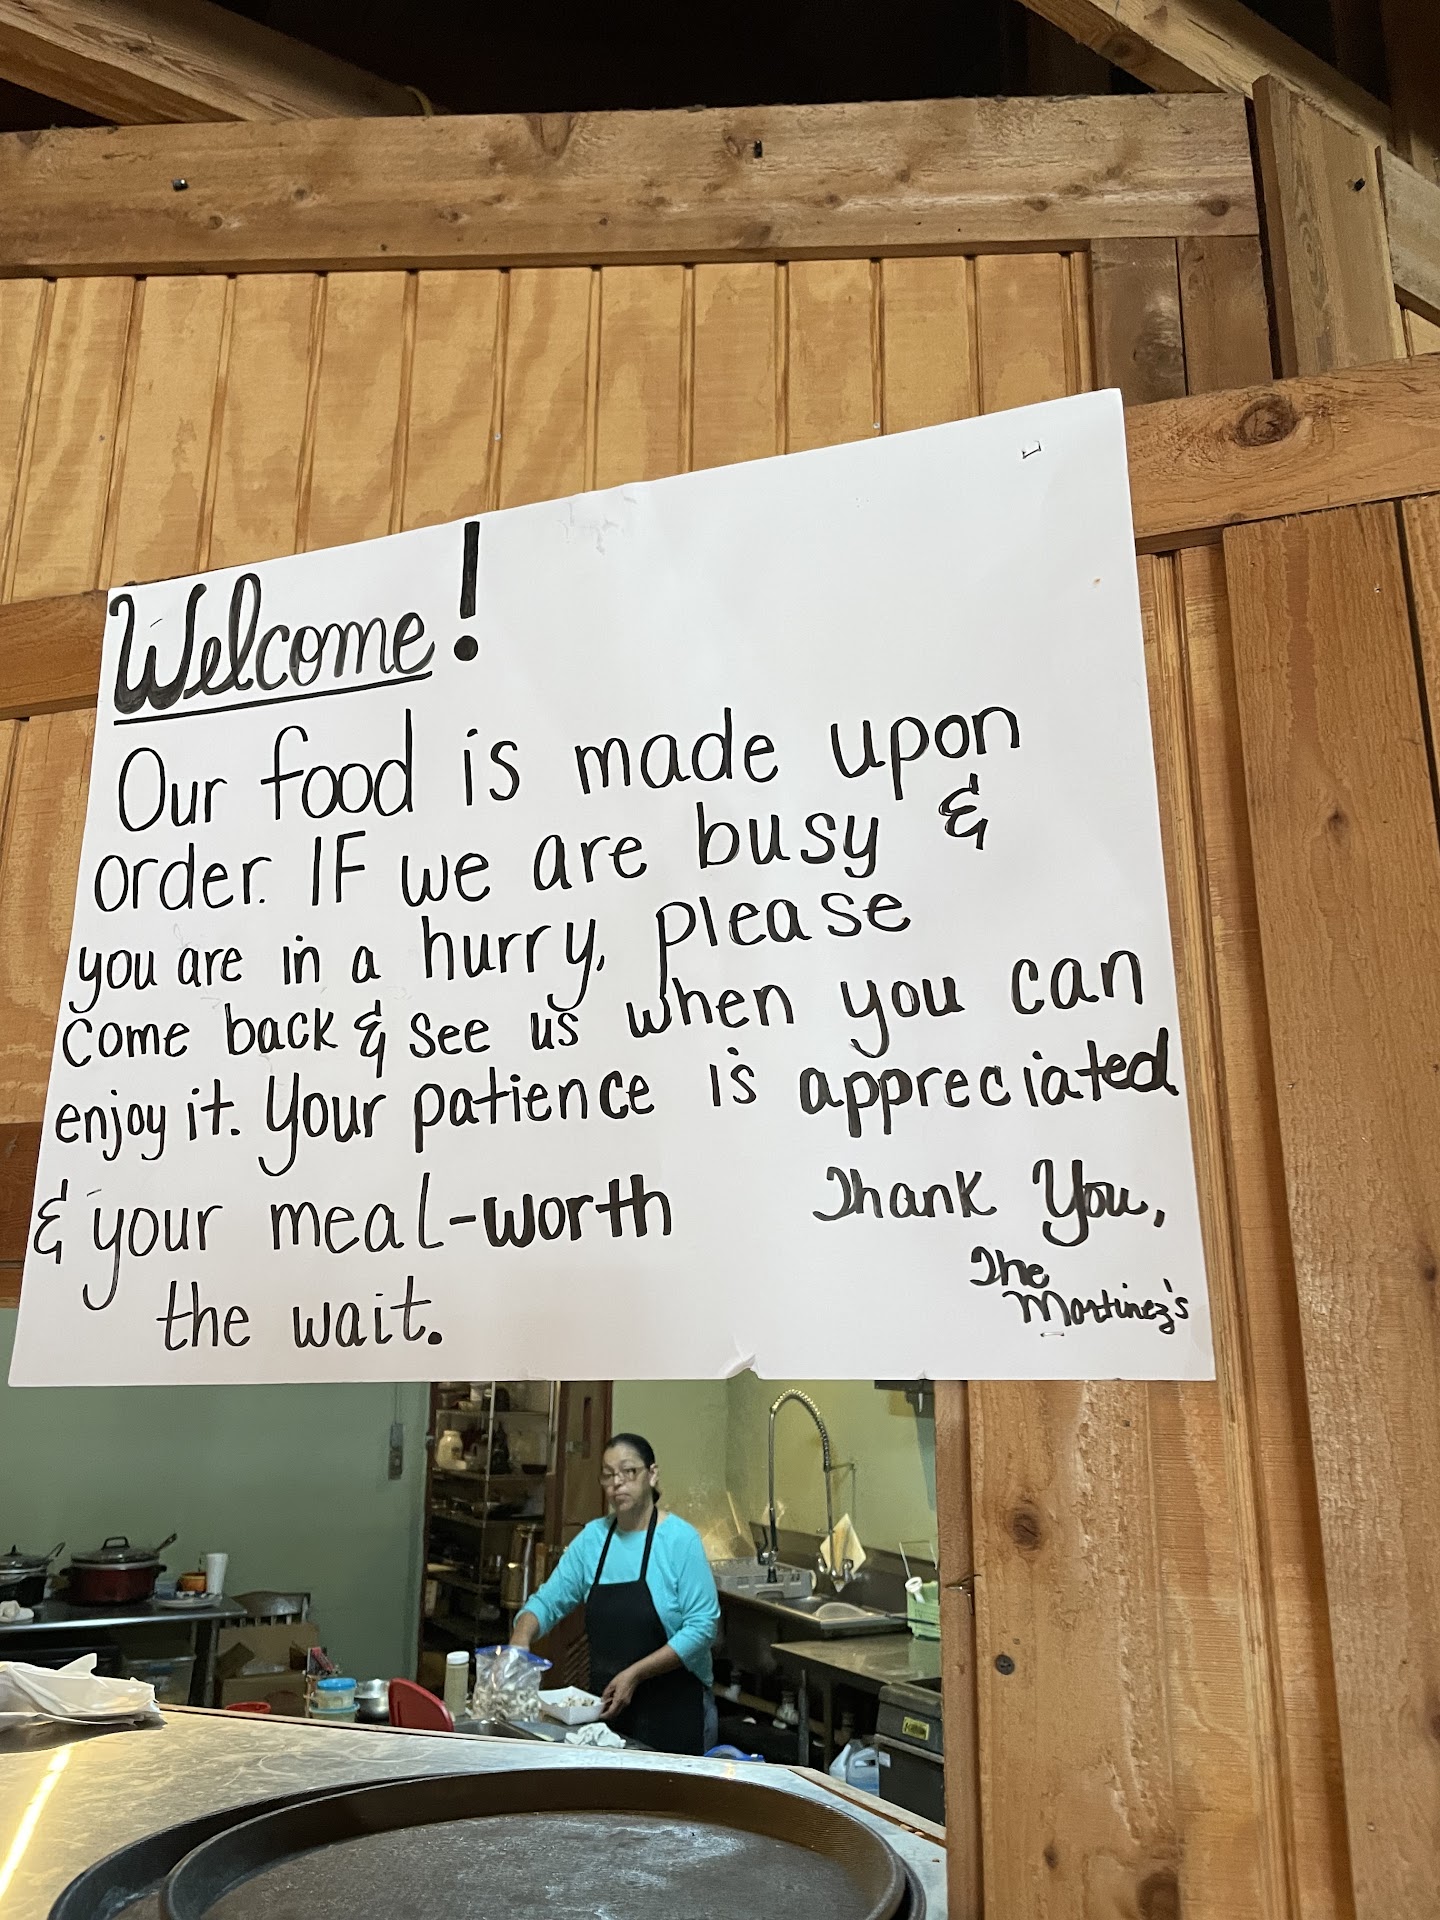 Welcome!
Our food is made upon
order. IF we are busy &
you are in a hurry, please
come back & see us when you can
enjoy it. Your patience is appreciated
& your meal-worth
the wait.
Thank You,
The
Martinez's